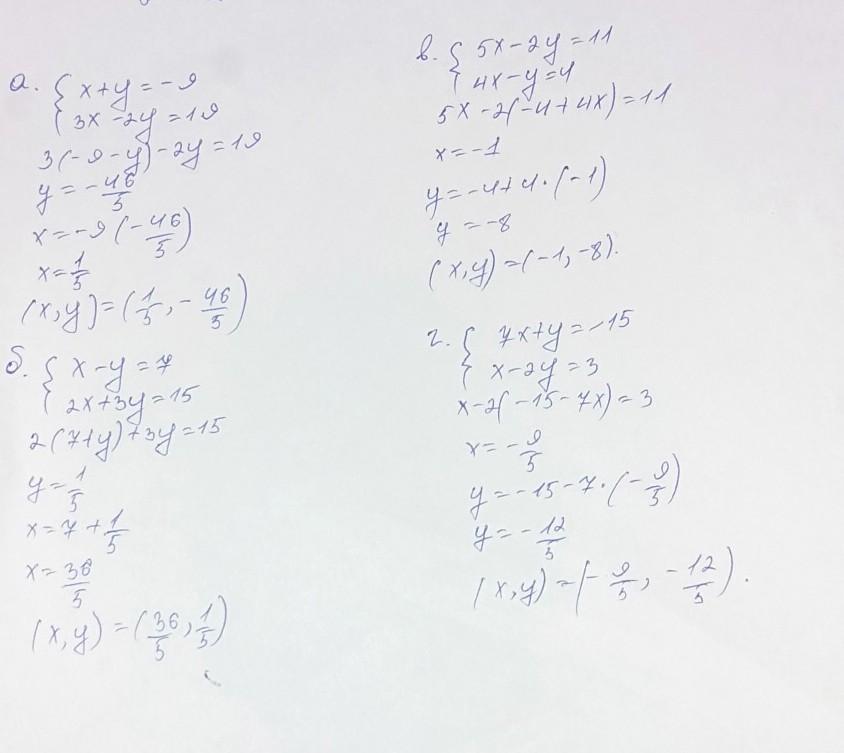 а. { x+y=-9
3x-2y=19
3(-9-y)-2y=19
y=-46/5
x=-9(-46/5)
x=1/5
(x,y)=(1/5,-46/5)
б. { x-y=7
2x+3y=15
2(7+y)+3y=15
y=1/5
x=7+1/5
x=36/5
(x,y)=(36/5,1/5)
в. { 5x-2y=11
4x-y=4
5x-2(-4+4x)=11
x=-1
y=-4+4·(-1)
y=-8
(x,y)=(-1,-8).
г. { 7x+y=-15
x-2y=3
x-2(-15-7x)=3
x=-9/5
y=-15-7·(-9/5)
y=-12/5
(x,y)=(-9/5,-12/5).